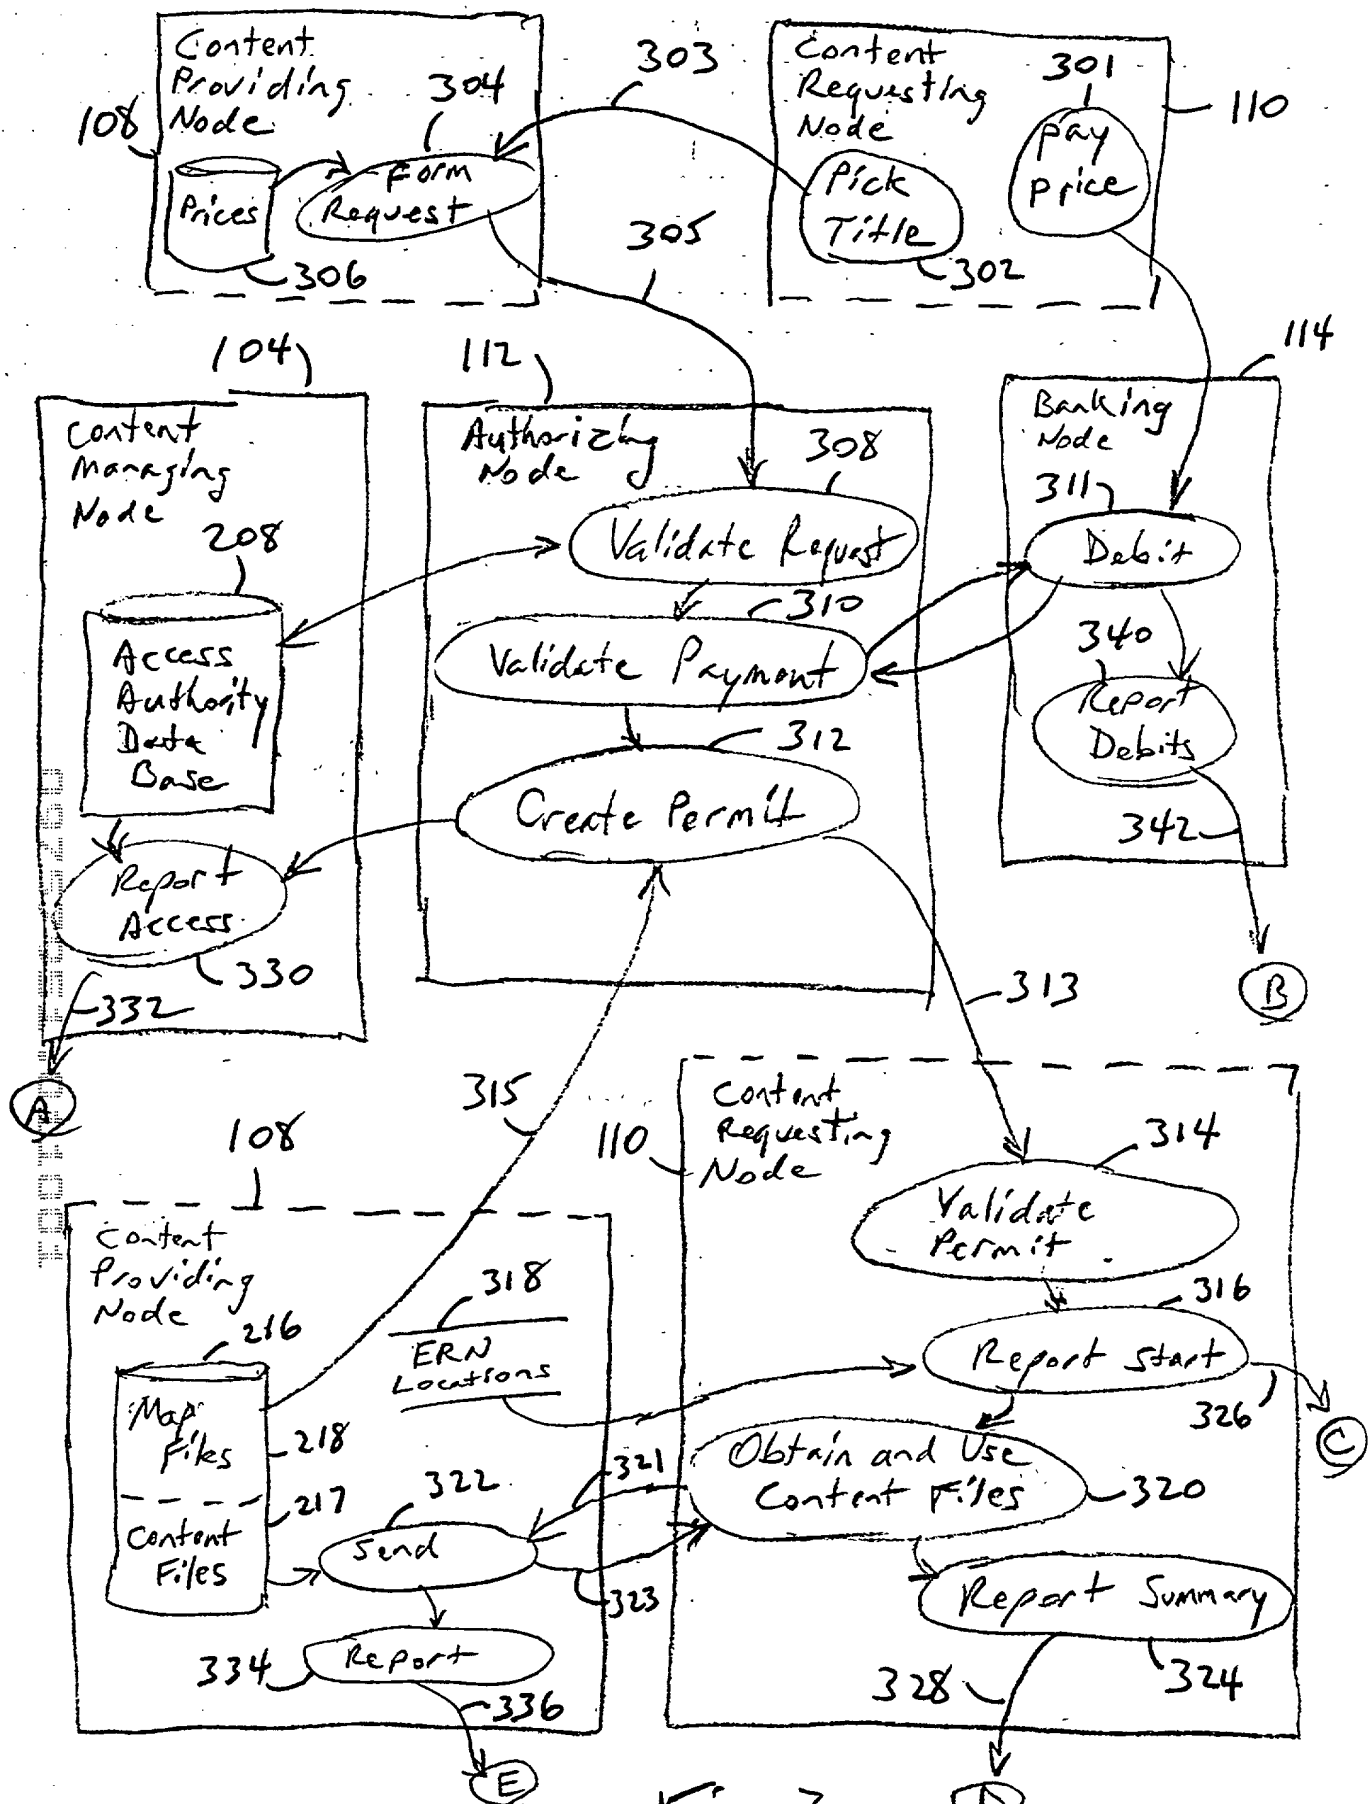 Content
Providing
Node
108
304
Prices
Form
Request
306
303
305
Content
Requesting
Node
301
110
pay
price
Pick
Title
302
104
Content
Managing
Node
208
Access
Authority
Data
Base
Report
Access
330
332
A
112
Authorizing
Node
308
Validate Request
310
Validate Payment
312
Create Permit
313
315
114
Banking
Node
311
Debit
340
Report
Debits
342
B
108
Content
Providing
Node
216
318
ERN
Locations
Map
Files
218
217
Content
Files
322
Send
321
323
334
Report
336
E
110
Content
Requesting
Node
314
Validate
Permit
316
Report Start
326
C
Obtain and Use
Content Files
320
Report Summary
324
328